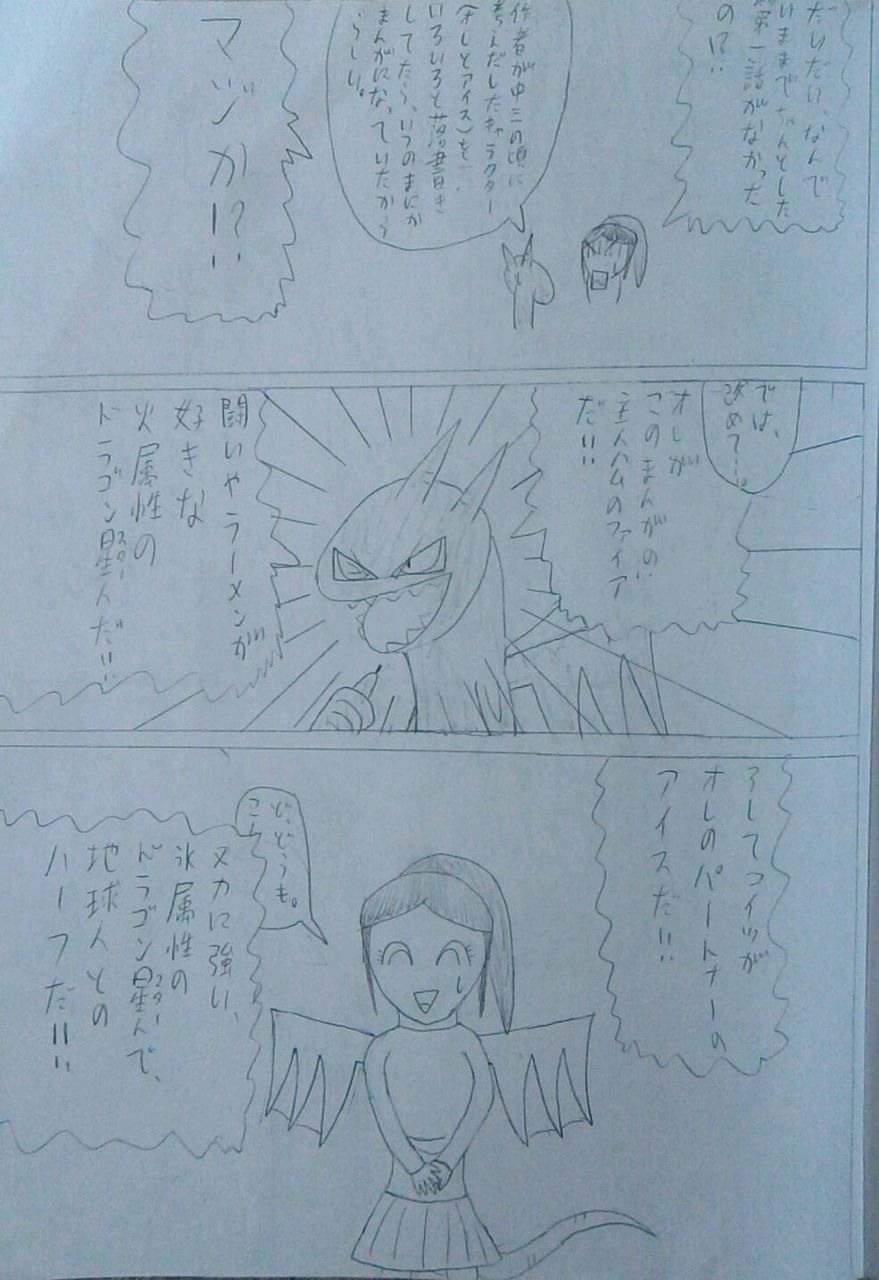 だいたい、なんで
いままでちゃんとした
第一話がなかった
の!?!!
作者が中三の頃に
考えだしたキャラクター
(オレとアイス)を…
いろいろと落書き
してたら、いつのまにか
まんがになっていたから
らしい。
マジか!?!!
では、
改めて…。
オレが
このまんがの
主人ハムのファイア
だ!!!
闘いやラーメンが
好きな
火属性の
ドラゴン星人だ!!!
スター
そしてコイツが
オレのパートナーの
アイスだ!!!
ど、どうも。
ヌカに強い、
氷属性の
ドラゴン星人で、
スター
地球人との
ハーフだ!!!